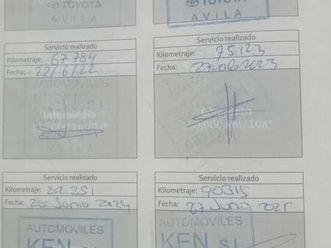 TOYOTA
AVILA
TOYOTA
AVILA
Servicio realizado
Kilometraje: 67784
Fecha: 22/6/22
Servicio realizado
Kilometraje: 75123
Fecha: 27.06.2023
AUTOMOVILES
Servicio realizado
Kilometraje: 82.351
Fecha: 20 Junio 2024
AUTOMOVILES
KEN
Servicio realizado
Kilometraje: 90315
Fecha: 27 Junio 2025
AUTOMOVILES
KEN S.